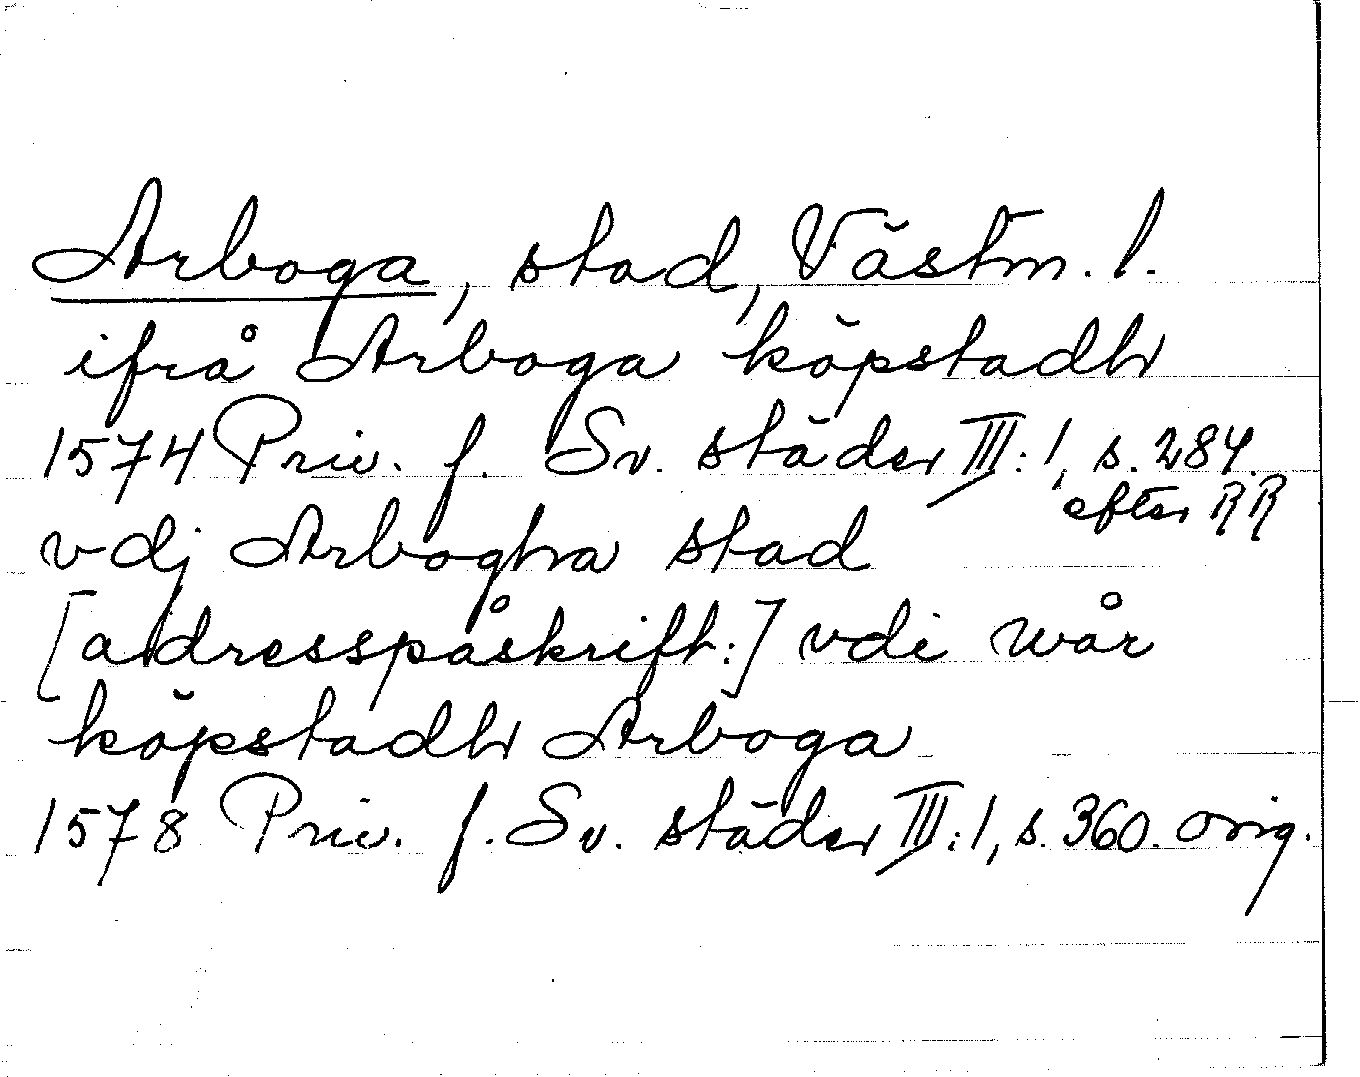 Arboga, stad, Västm. l.
ifrå Arboga köpstadh
1574 Priv. f. Sv. städer III:1, s. 284.
efter RR
vdj Arbogha stad
[adresspåskrift:] vdi wår
köpstadh Arboga
1578 Priv. f. Sv. städer III:1, s. 360. orig.